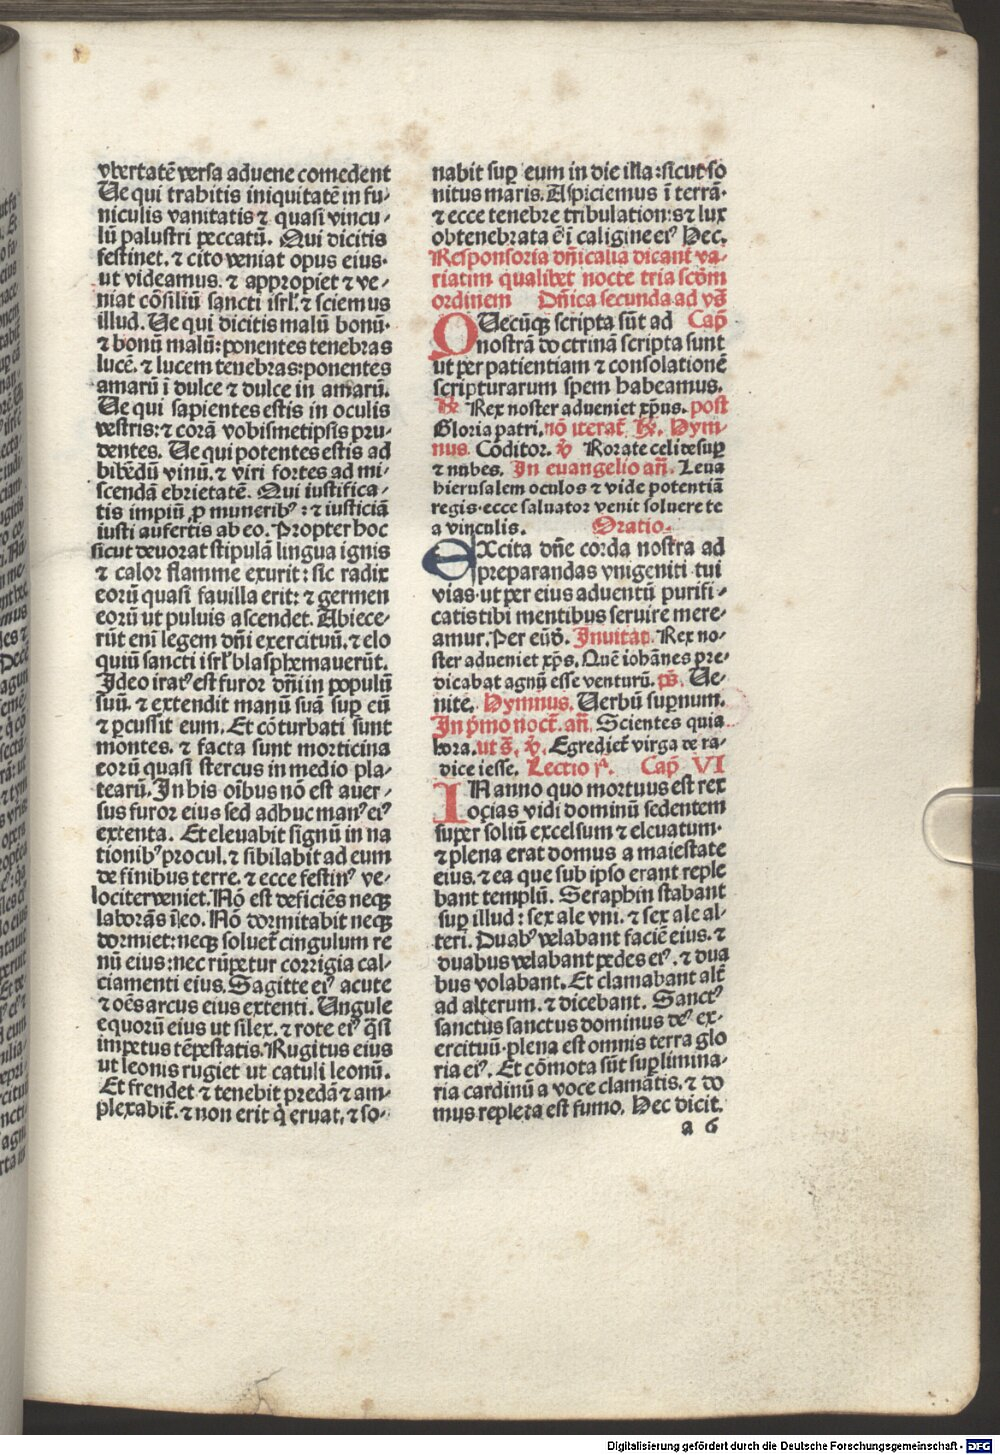 vbertatē versa aduene comedent
Ue qui trahitis iniquitatē in fu-
niculis vanitatis ⁊ quasi vincu-
lū palustri peccatū. Qui dicitis
festinet. ⁊ cito veniat opus eius.
ut videamus. ⁊ appropiet ⁊ ve-
niat cōsiliū sancti isrl'. ⁊ sciemus
illud. Ue qui dicitis malū bonū.
⁊ bonū malū: ponentes tenebras
lucē. ⁊ lucem tenebras: ponentes
amarū ī dulce ⁊ dulce in amarū.
Ue qui sapientes estis in oculis
vestris: ⁊ corā vobismetipsis pru-
dentes. Ue qui potentes estis ad
bibēdū vinū. ⁊ viri fortes ad mi-
scendā ebrietatē. Qui iustifica-
tis impiū ꝓ munerib⁹: ⁊ iusticiā
iusti aufertis ab eo. Propter hoc
sicut deuorat stipulā lingua ignis
⁊ calor flamme exurit: sic radix
eorū quasi fauilla erit: ⁊ germen
eorū ut puluis ascendet. Abiece-
rūt eni legem dn̄i exercituū. ⁊ elo
quiū sancti isrl' blasphemauerūt.
Ideo irat⁹ est furor dn̄i in populū
suū. ⁊ extendit manū suā suꝑ eū
⁊ ꝑcussit eum. Et cōturbati sunt
montes. ⁊ facta sunt morticina
eorū quasi stercus in medio pla-
tearū. In his oībus nō est auer-
sus furor eius sed adhuc man⁹ ei⁹
extenta. Et eleuabit signū in na
tionib⁹ procul. ⁊ sibilabit ad eum
de finibus terre. ⁊ ecce festin⁹ ve-
lociter veniet. Nō est deficiēs neqꝫ
laborās ī eo. Nō dormitabit neqꝫ
dormiet: neqꝫ soluet̄ cingulum re
nū eius: nec rūpetur corrigia cal-
ciamenti eius. Sagitte ei⁹ acute
⁊ oēs arcus eius extenti. Ungule
equorū eius ut silex. ⁊ rote ei⁹ q̄si
impetus tēpestatis. Rugitus eius
ut leonis rugiet ut catuli leonū.
Et frendet ⁊ tenebit predā ⁊ am-
plexabit̄. ⁊ non erit q̇ eruat. ⁊ so-
nabit suꝑ eum in die illa: sicut so
nitus maris. Aspiciemus ī terrā.
⁊ ecce tenebre tribulationis ⁊ lux
obtenebrata ē ī caligine ei⁹ Hec.
Responsoria dn̄icalia dicant̄ va-
riatim qualibet nocte tria scd̄m
ordinem Dn̄ica secunda ad vs̄
QUecūqꝫ scripta sūt ad Cap̄
nostrā doctrinā scripta sunt
ut per patientiam ⁊ consolationē
scripturarum spem habeamus.
℟. Rex noster adueniet xp̄us. post
Gloria patri. nō iterat̄ ℟. Hym-
nus. Cōditor. ℣ Rorate celi desuꝑ
⁊ nubes. In euangelio an̄. Leua
hierusalem oculos ⁊ vide potentiā
regis. ecce saluator venit soluere te
a vinculis. Oratio.
EXcita dn̄e corda nostra ad
preparandas vnigeniti tui
vias. ut per eius aduentū purifi-
catis tibi mentibus seruire mere-
amur. Per eūd̄. Inuitat̄. Rex no-
ster adueniet xp̄s. Quē iohānes pre-
dicabat agnū esse venturū. ps̄. Ue-
nite. Hymnus. Uerbū suꝑnum.
In p̄mo noct̄. an̄. Scientes quia
hora. ut s̄. ℣. Egrediet̄ virga de ra-
dice iesse. Lectio j⁹. Cap̄ VI
IN anno quo mortuus est rex
oçias vidi dominū sedentem
super soliū excelsum ⁊ eleuatum.
⁊ plena erat domus a maiestate
eius. ⁊ ea que sub ipso erant reple
bant templū. Seraphin stabant
suꝑ illud: sex ale vni. ⁊ sex ale al-
teri. Duab⁹ velabant faciē eius. ⁊
duabus velabant pedes ei⁹. ⁊ dua
bus volabant. Et clamabant alt̄
ad alterum. ⁊ dicebant. Sanct⁹
sanctus sanctus dominus de⁹ ex-
ercituū. plena est omnis terra glo
ria ei⁹. Et cōmota sūt suꝑlimina-
ria cardinū a voce clamātis. ⁊ do
mus repleta est fumo. Hec dicit.
a 6
Digitalisierung gefördert durch die Deutsche Forschungsgemeinschaft - DFG